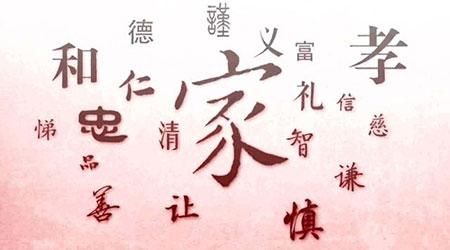 謹
德
义
富
和
孝
仁
家
礼
信
悌
忠
清
智
慈
品
谦
善
让
慎